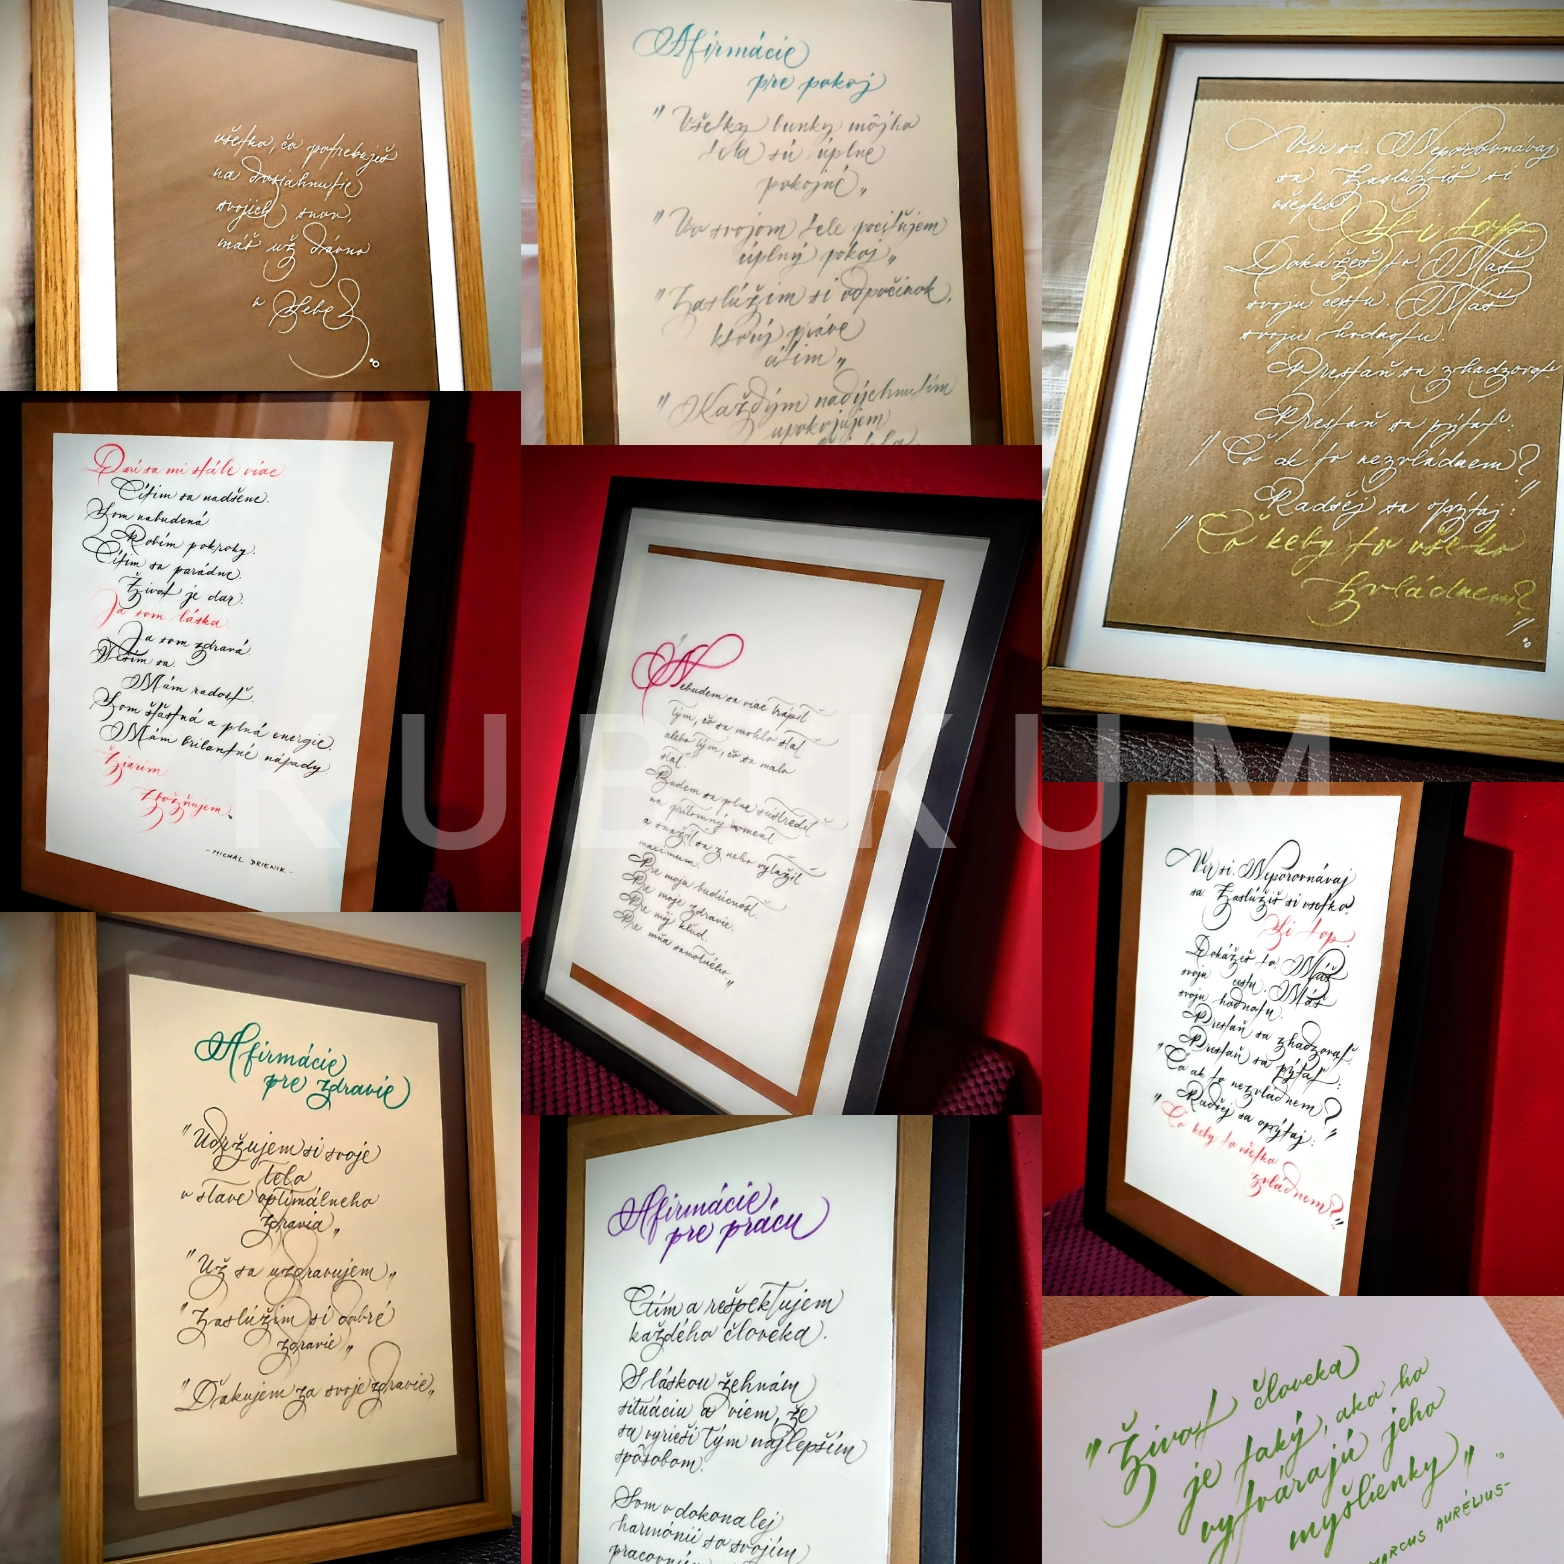 všetko, čo potrebuješ
na dosiahnutie
svojich snov,
máš už dávno
v sebe
Afirmácie
pre pokoj
"Všetky bunky môjho
tela sú úplne
pokojné"
"Vo svojom tele pociťujem
úplný pokoj"
"Zaslúžim si odpočinok,
ktorý práve
cítim"
"Každým nadýchnutím
upokojujem
Ver si. Neporovnávaj
sa. Zaslúžiš si
všetko. Si top.
Dokážeš to. Máš
svoju cestu. Máš
svoju hodnotu.
Prestaň sa zhadzovať
Prestaň sa pýtať:
"Čo ak to nezvládnem?"
Radšej sa opýtaj:
"Čo keby to všetko
zvládnem?"
Darí sa mi stále viac.
Cítim sa nadšene.
Som nabudená
Robím pokroky.
Cítim sa parádne.
Život je dar.
Ja som láska
Ja som zdravá
Teším sa.
Mám radosť.
Som šťastná a plná energie.
Mám briantné nápady
Žiarim
Zbožňujem.
-MICHAL DRIENIK-
Nebudem sa viac trápiť
tým, čo sa mohlo stať
alebo tým, čo sa malo
stať.
Budem sa plne sústrediť
na prítomný moment
a snažiť sa z neho vyťažiť
maximum.
Pre moju budúcnosť.
Pre moje zdravie.
Pre môj kľud.
Pre mňa samotného"
KUBIKUM
Ver si. Neporovnávaj
sa. Zaslúžiš si všetko.
Si top.
Dokážeš to. Máš
svoju cestu. Máš
svoju hodnotu.
Prestaň sa zhadzovať.
Prestaň sa pýtať:
"Čo ak to nezvládnem?"
Radšej sa opýtaj:
"Čo keby to všetko
zvládnem?"
Afirmácie
pre zdravie
"Udržujem si svoje
telo
v stave optimálneho
zdravia"
"Už sa uzdravujem"
"Zaslúžim si dobré
zdravie"
"Ďakujem za svoje zdravie"
Afirmácie
pre prácu
Ctím a rešpektujem
každého človeka.
S láskou žehnám
situáciu a viem, že
sa vyrieši tým najlepším
spôsobom.
Som v dokonalej
harmónii so svojím
"Život človeka
je taký, ako ho
vytvárajú jeho
myšlienky"
MARCUS AURÉLIUS-